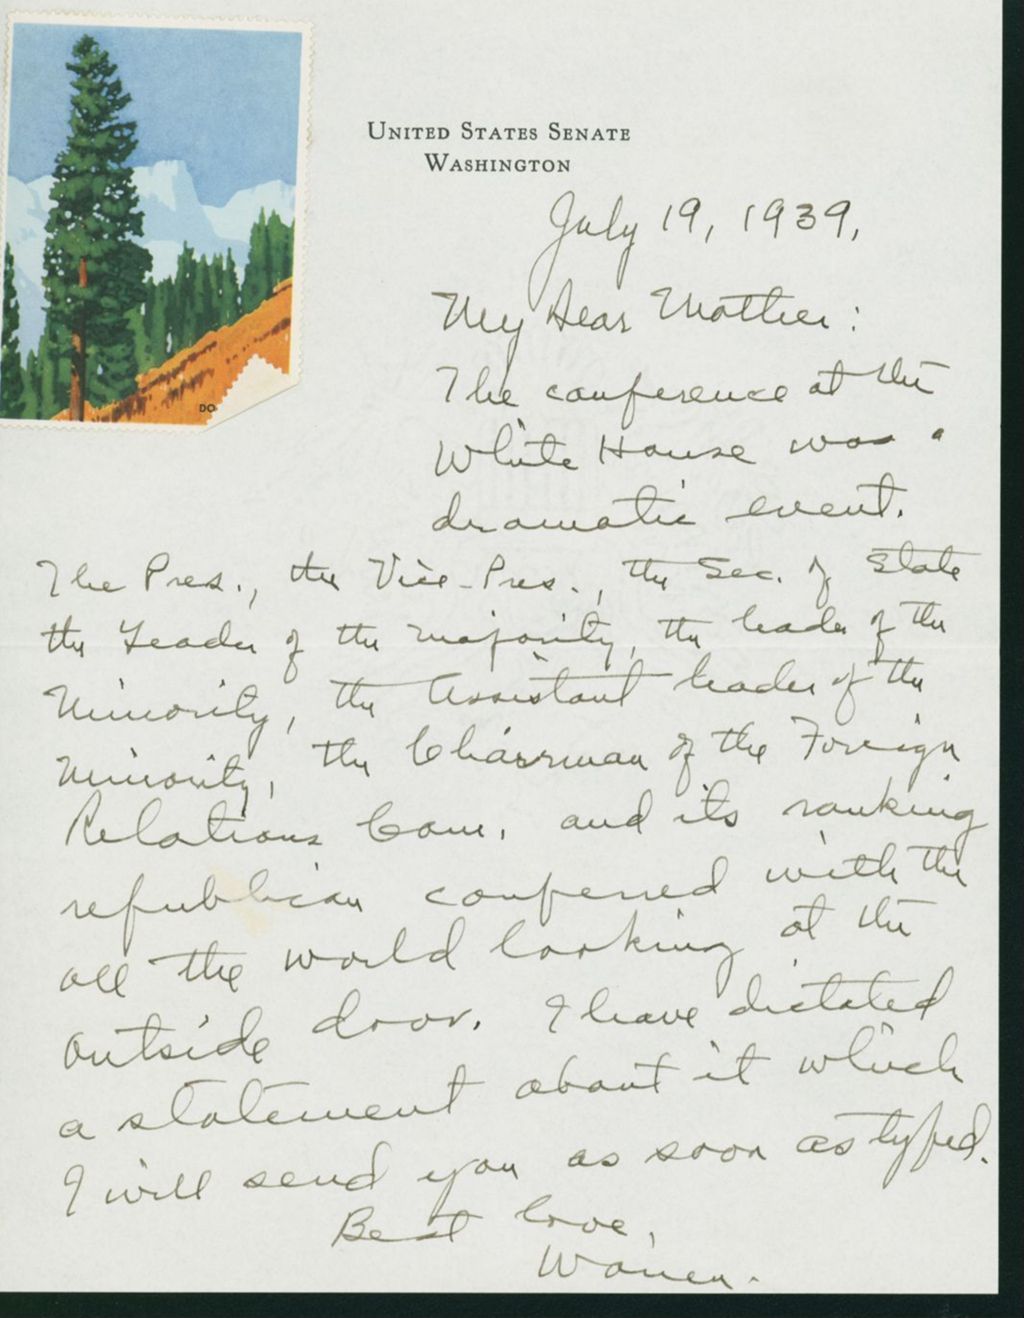 United States Senate
Washington
July 19, 1939.
My Dear Mother:
The conference at the
White House was a
dramatic event.
The Pres., the Vice-Pres., the Sec. of State
the Leader of the majority, the leader of the
Minority, the Assistant leader of the
Minority, the Chairman of the Foreign
Relations Com. and its ranking
republican conferred with the
all the world looking at the
outside door. I have dictated
a statement about it which
I will send you as soon as typed.
Best love,
Warren.
DO